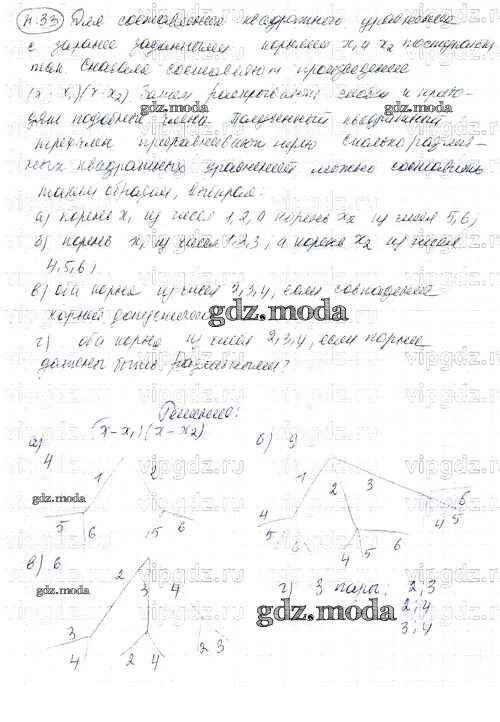 п.33 Для составления квадратного уравнения
с заранее заданными корнями x₁ и x₂ поступают
так. Сначала составляют произведение
(x - x₁)(x - x₂) Затем раскрывают скобки и приво-
дят подобные члены. Полученный квадратный
трехчлен приравнивают нулю Сколько различ-
ных квадратных уравнений можно составить
таким образом, выбирая:
а) корень x₁ из чисел 1, 2, а корень x₂ из чисел 5, 6;
б) корень x₁ из чисел 1, 2, 3, а корень x₂ из чисел
4, 5, 6;
в) оба корня из чисел 2, 3, 4, если совпадение
корней допустимо
г) оба корня из чисел 2, 3, 4, если корни
должны быть различными?
Решение:
(x - x₁)(x - x₂)
а)
4
1 2
5 6 5 6
б) 9
1 2 3
4 5 6 4 5 6 4 5 6
в) 6
2 3 4
3 4 2 4 2 3
г) 3 пары: 2; 3
2; 4
3; 4
gdz.moda
vipgdz.ru